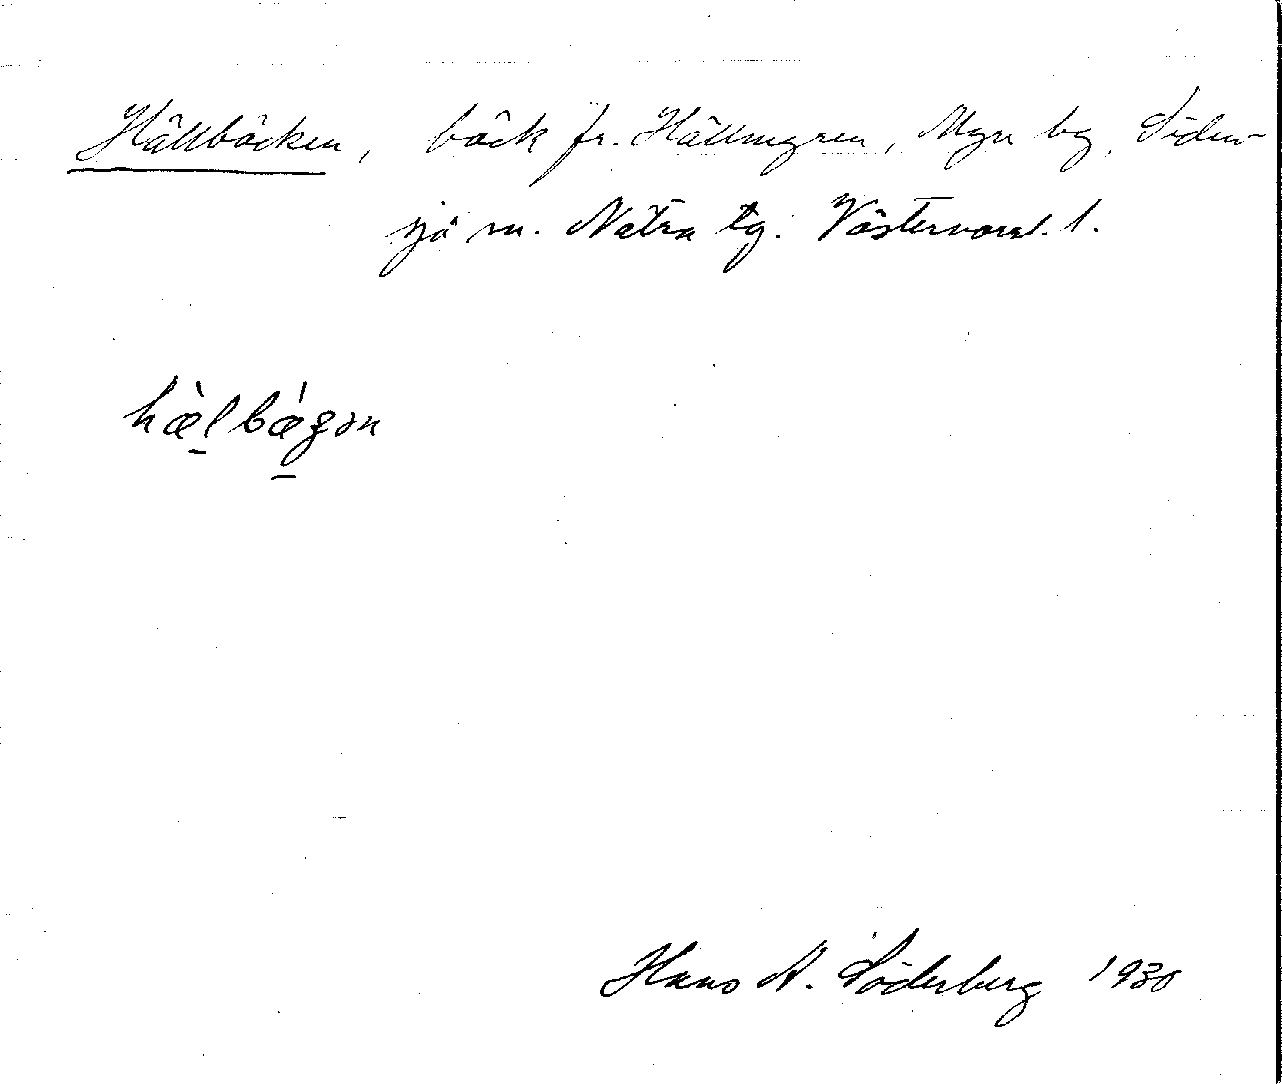 Hällbäcken, bäck fr. Hällmyren, Myre by, Siden-
sjö sn. Nätra tg. Västernorrl. l.
hæ̀lbǽgən
Hans A. Söderberg 1930